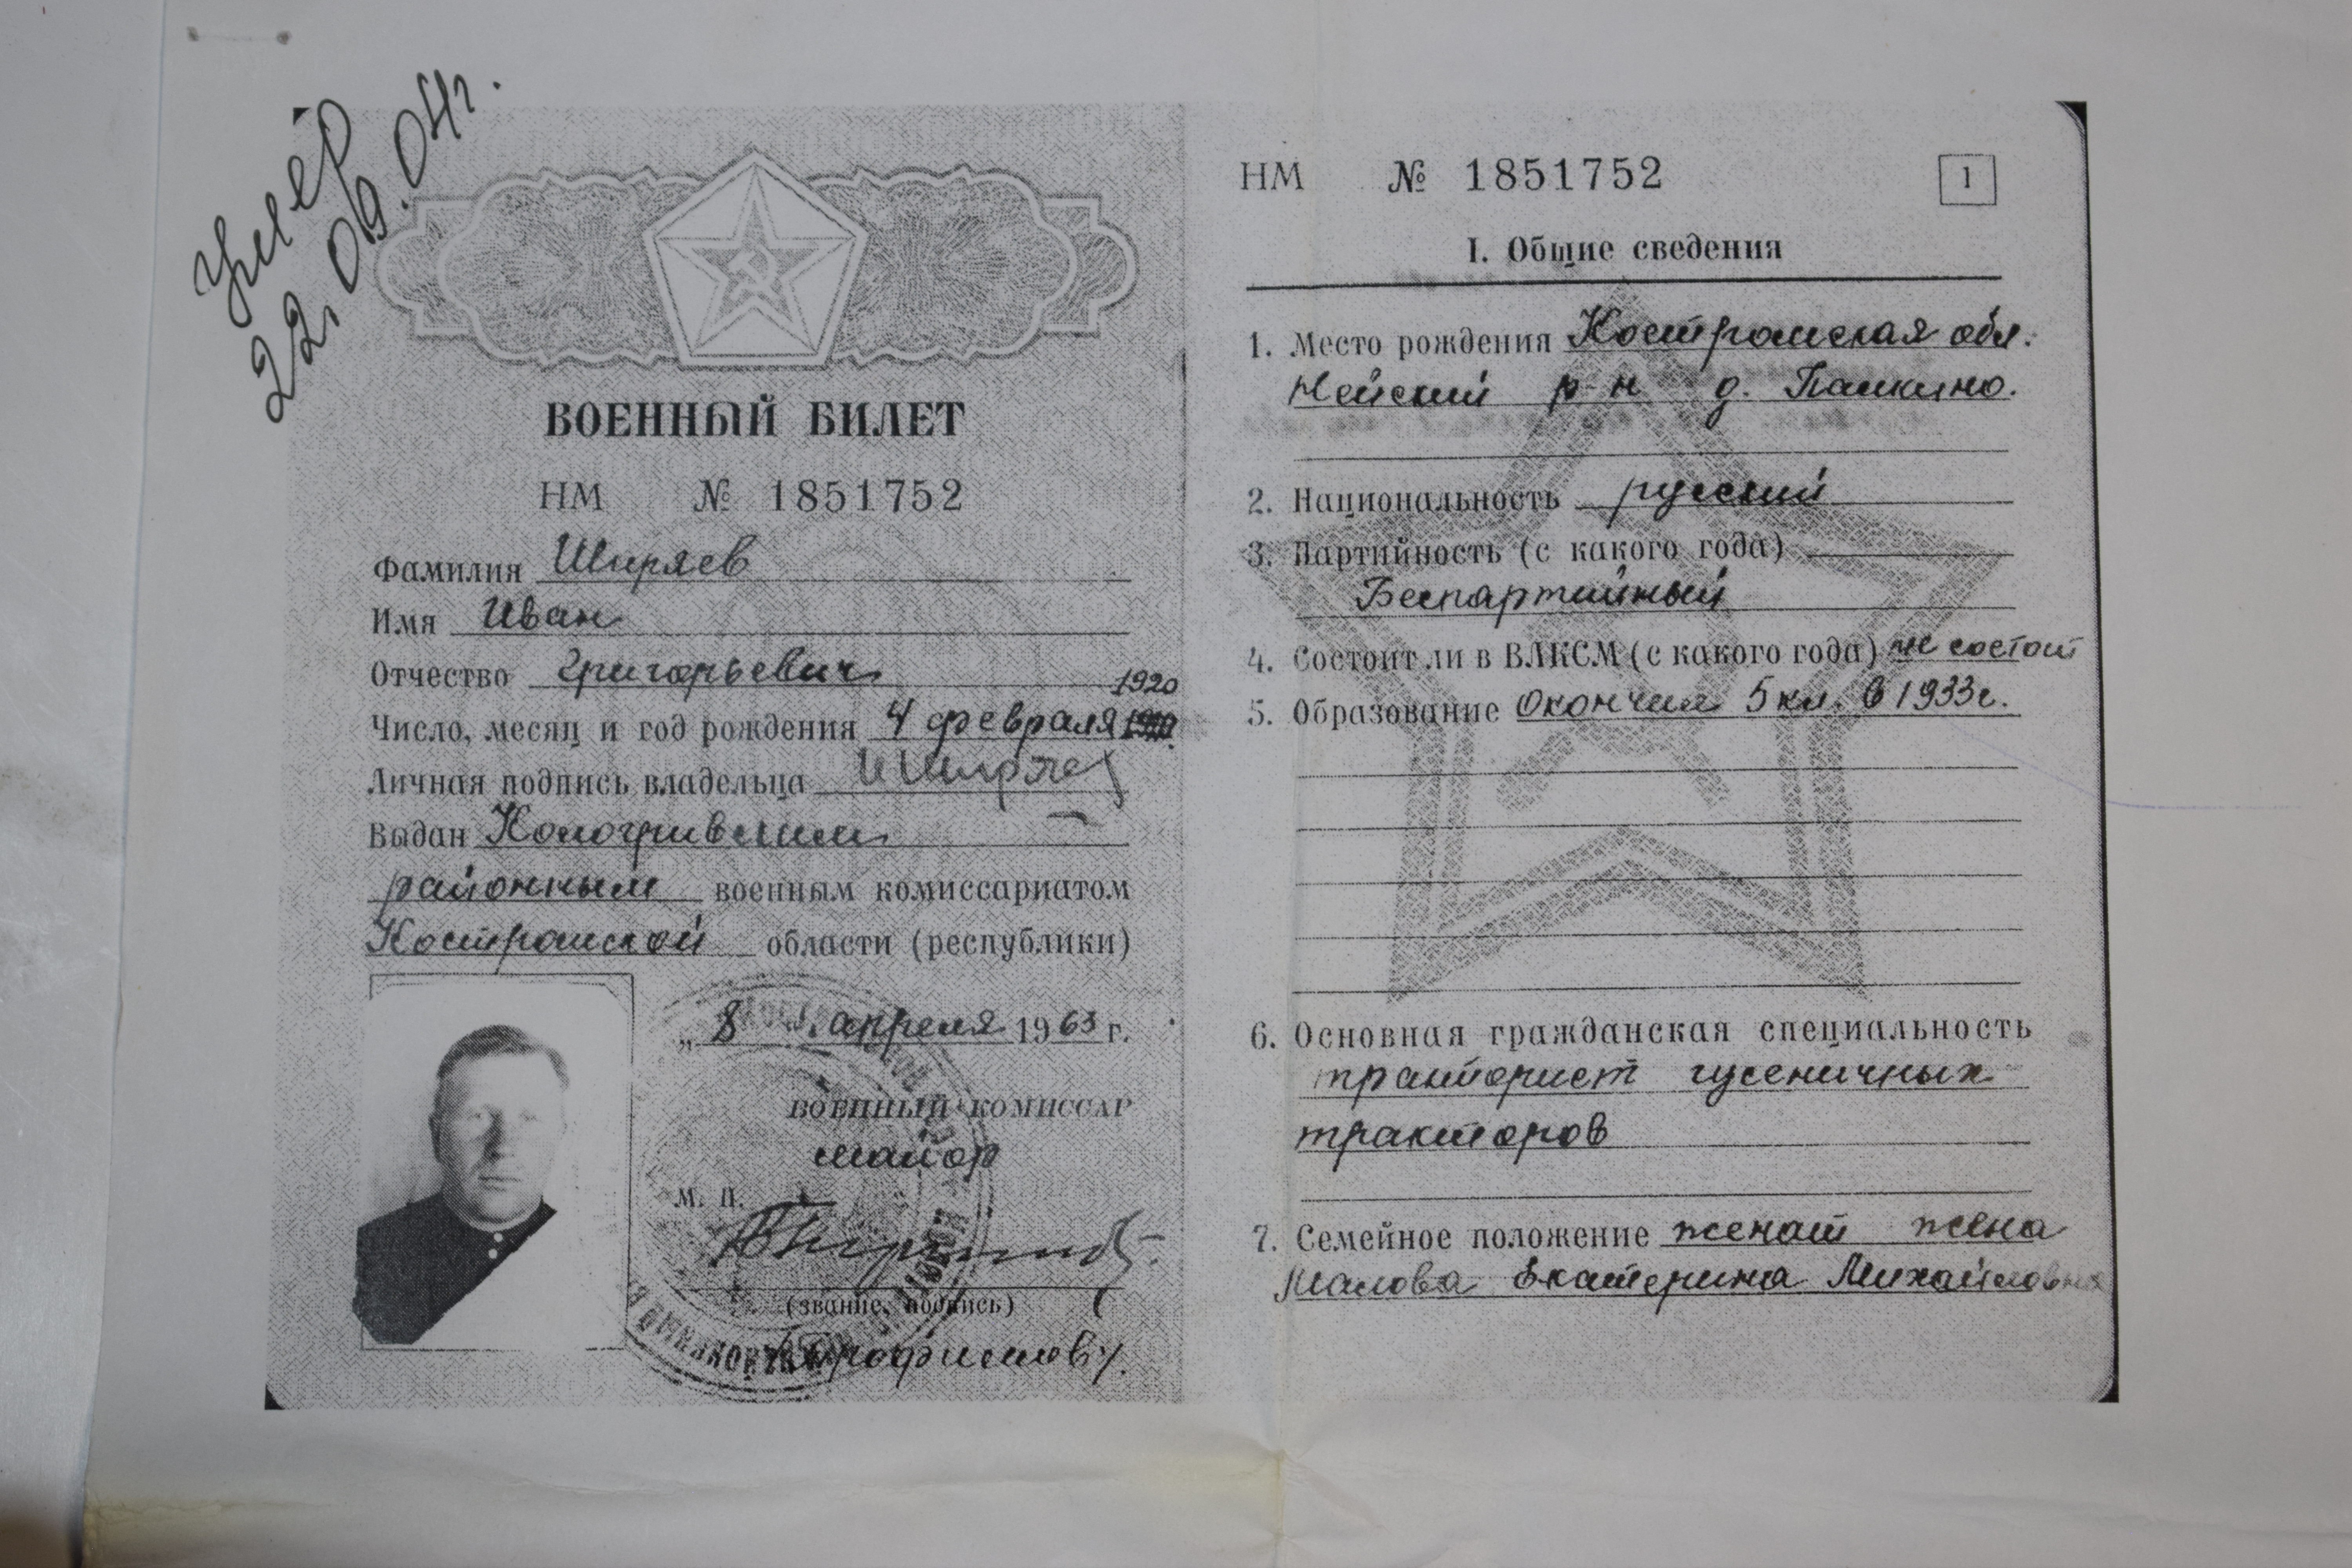 Умер
22.09.04г.
ВОЕННЫЙ БИЛЕТ
НМ № 1851752
Фамилия Ширяев
Имя Иван
Отчество Григорьевич
1920
Число, месяц и год рождения 4 февраля
Личная подпись владельца ИШиряев
Выдан Кологривским
районным военным комиссариатом
Костромской области (республики)
„ 8 " апреля 1963 г.
ВОЕННЫЙ КОМИССАР
майор
М. П.
(звание, подпись)
НМ № 1851752 1
I. Общие сведения
1. Место рождения Костромская обл.
Нейский р-н д. Пашкино.
2. Национальность русский
3. Партийность (с какого года)
Беспартийный
4. Состоит ли в ВЛКСМ (с какого года) не состоит
5. Образование Окончил 5 кл. в 1933г.
6. Основная гражданская специальность
тракторист гусеничных
тракторов
7. Семейное положение женат жена
Екатерина Михайловна